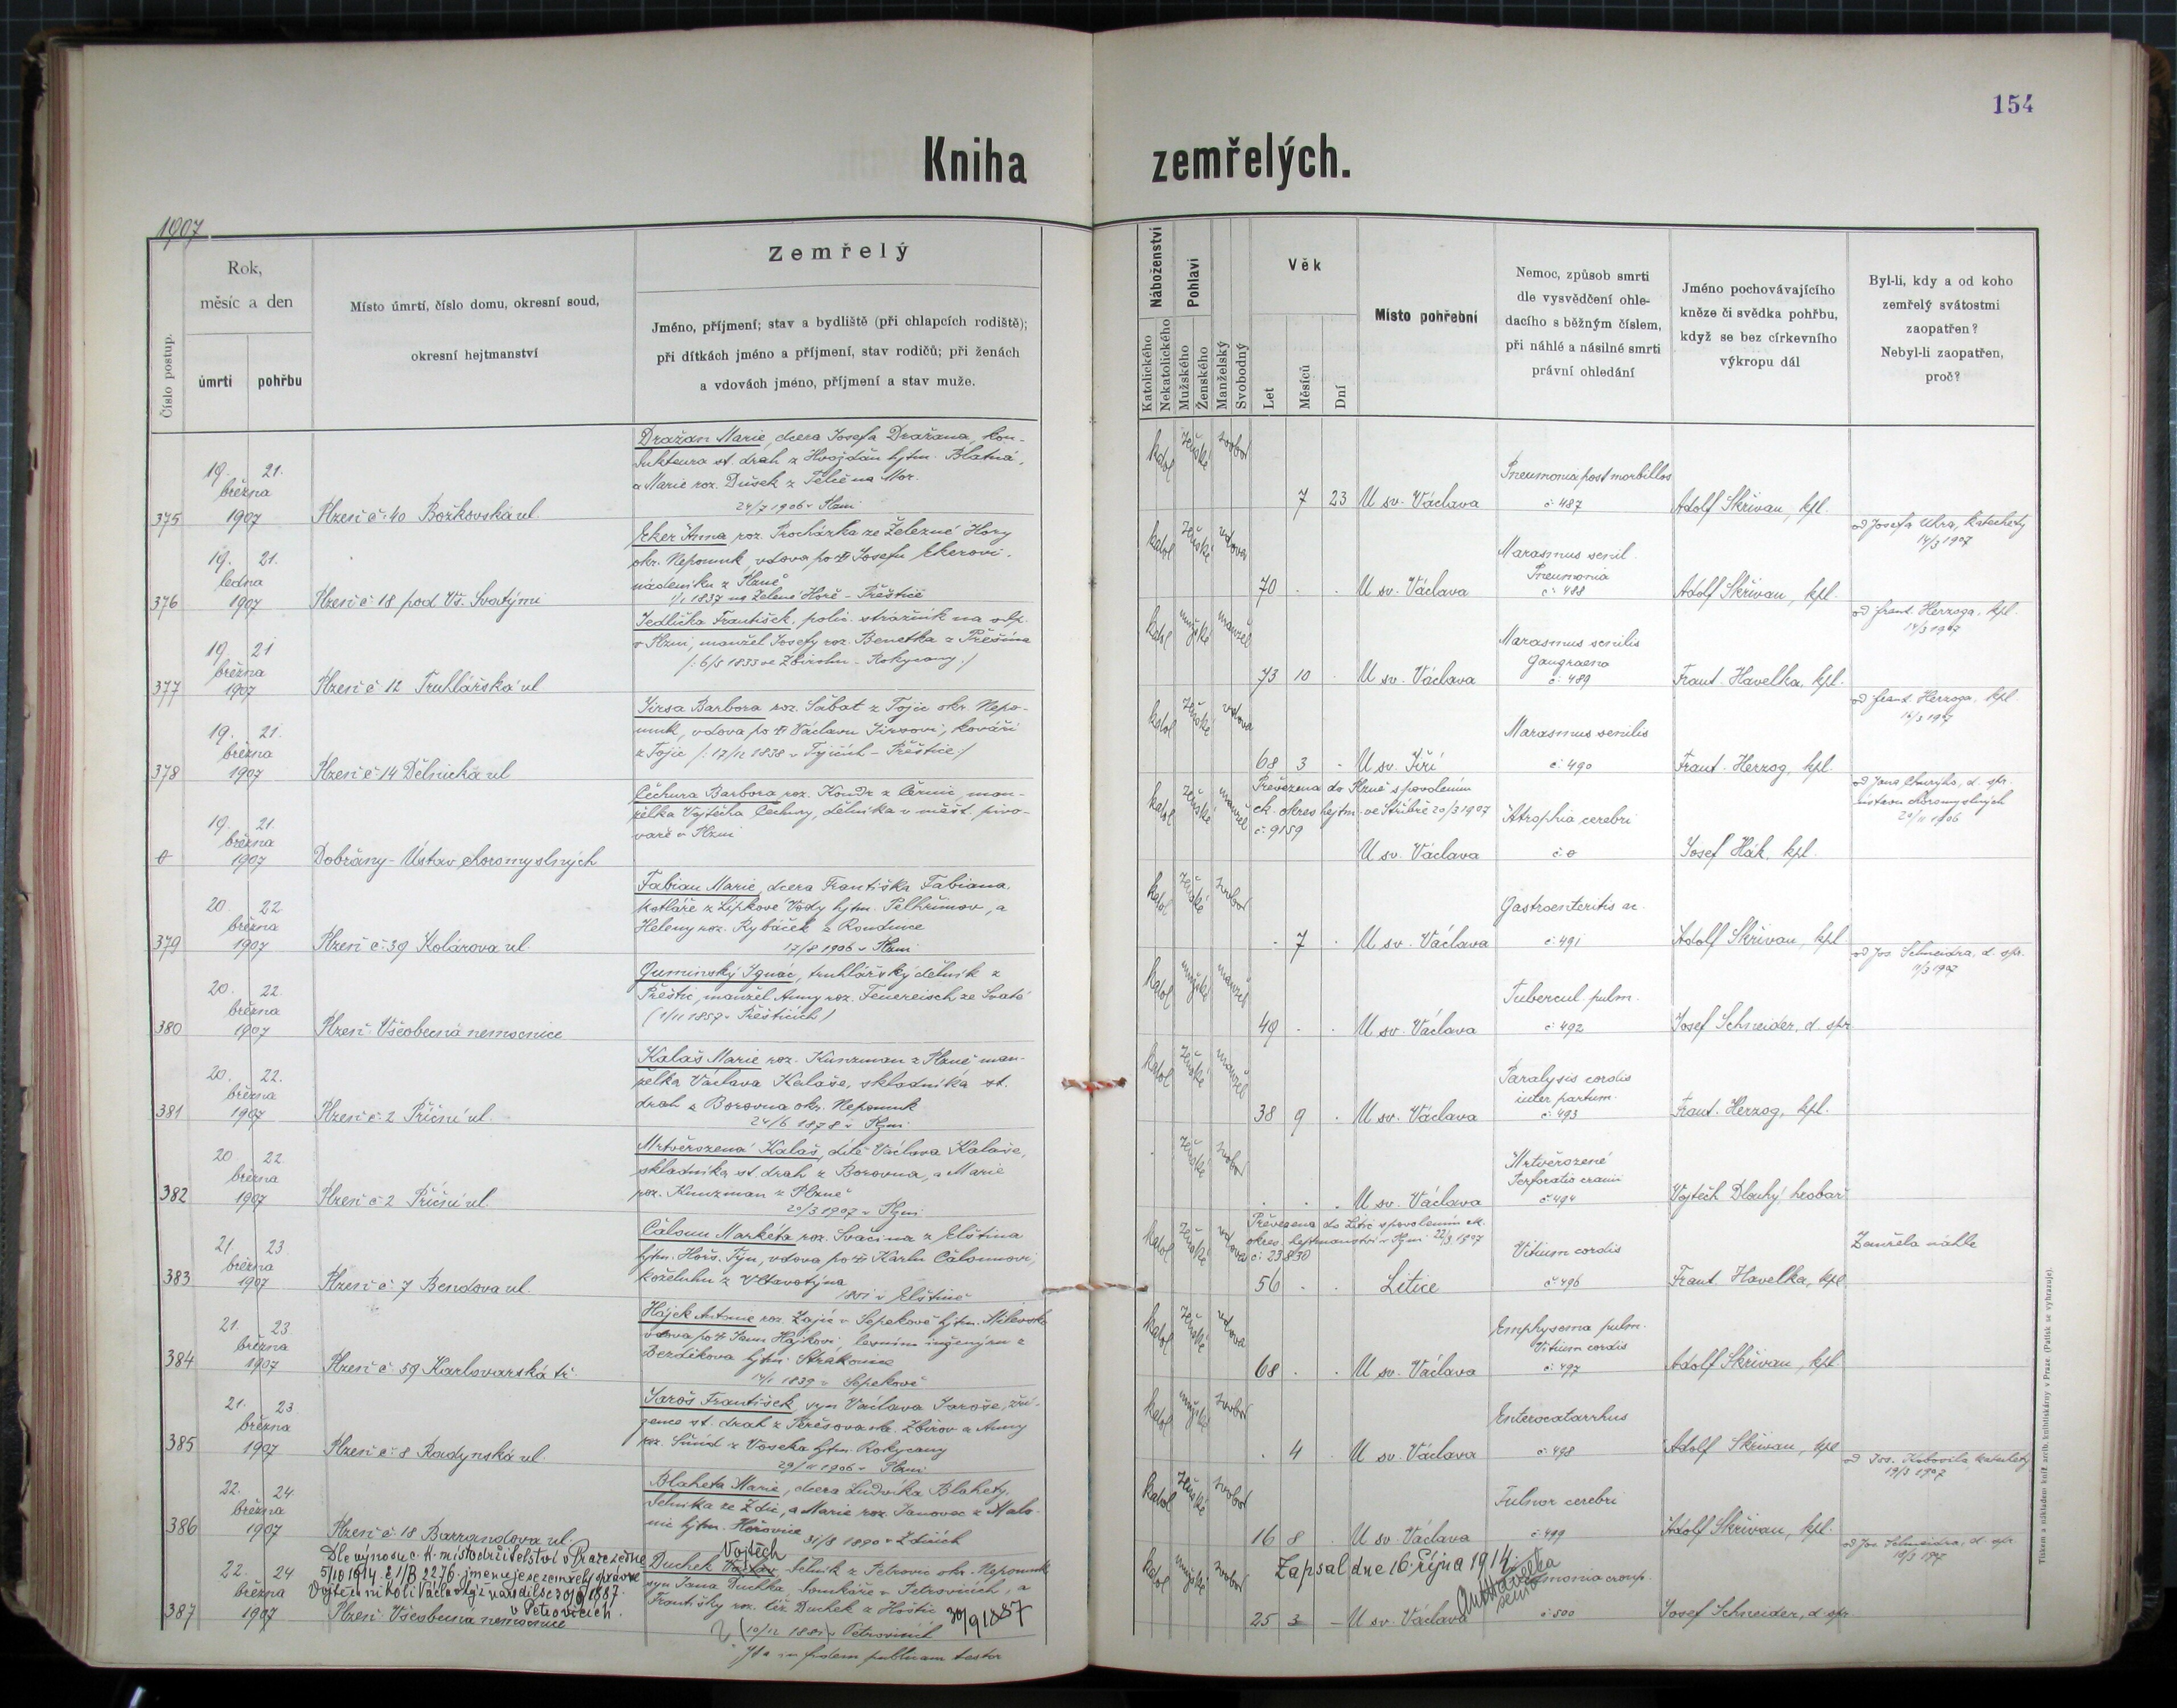 154
Kniha zemřelých.
1907
Číslo postup.
Rok,
měsíc a den
úmrtí
pohřbu
Místo úmrtí, číslo domu, okresní soud,
okresní hejtmanství
Zemřelý
Jméno, příjmení; stav a bydliště (při chlapcích rodiště);
při dítkách jméno a příjmení, stav rodičů; při ženách
a vdovách jméno, příjmení a stav muže.
Náboženství
Katolického
Nekatolického
Pohlaví
Mužského
Ženského
Manželský
Svobodný
Věk
Let
Měsíců
Dní
Místo pohřební
Nemoc, způsob smrti
dle vysvědčení ohle-
dacího s běžným číslem,
při náhlé a násilné smrti
právní ohledání
Jméno pochovávajícího
kněze či svědka pohřbu,
když se bez církevního
výkropu dál
Byl-li, kdy a od koho
zemřelý svátostmi
zaopatřen?
Nebyl-li zaopatřen,
proč?
375
19. 21.
března
1907
Plzeň č. 40 Božkovská ul.
Dražan Marie, dcera Josefa Dražana, kon-
dukteura st. drah z Hvožďan hjtm. Blatná,
a Marie roz. Dušek z Telče na Mor.
24/7 1906 v Plzni
katol ženské svobod
7 23 U sv. Václava
Pneumonia post morbillos
č. 487
Adolf Skřivan, kpl.
376
19. 21.
ledna
1907
Plzeň č. 18 pod Vš. Svatými
Eker Anna roz. Procházka ze Železné Hory
okr. Nepomuk, vdova po † Josefu Ekerovi,
nádeníku z Plzně
1/1 1837 na Zelené Hoře - Přeštice
katol ženské vdova
70 . . U sv. Václava
Marasmus senil.
Pneumonia
č. 488
Adolf Skřivan, kpl.
od Josefa Uhra, katechety
14/3 1907
377
19. 21
března
1907
Plzeň č. 12 Truhlářská ul
Jedlička František, polic. strážník na odp.
v Plzni, manžel Josefy roz. Benetka z Přešína
/: 6/5 1833 ve Zbirohu - Rokycany :/
katol mužské manžel
73 10 . U sv. Václava
Marasmus senilis
Gangraena
č. 489
Frant. Havelka, kpl.
od Frant. Herzoga, kpl.
14/3 1907
378
19. 21.
března
1907
Plzeň č. 14 Dělnická ul
Jirsa Barbora roz. Šabat z Tojic okr. Nepo-
muk, vdova po † Václavu Jirsovi, kováři
z Tojic /: 17/12 1838 v Tojicích - Přeštice :/
katol ženské vdova
68 3 . U sv. Jiří
Marasmus senilis
č. 490
Frant. Herzog, kpl.
od Frant. Herzoga, kpl.
16/3 1907
0
19. 21.
března
1907
Dobřany - Ústav choromyslných
Čechura Barbora roz. Kondr z Černic, man-
želka Vojtěcha Čechury, dělníka v měšt. pivo-
vaře v Plzni
katol ženské manžel
Převezena do Plzně s povolením
ck. okres hejtm. ve Stříbře 20/3 1907
č. 9159
U sv. Václava
Atrophia cerebri
č. 0
Josef Hák, kpl.
ústavu choromyslných
20/11 1906
379
20 22
března
1907
Plzeň č. 39 Kolárova ul.
Fabian Marie, dcera Františka Fabiana,
kotláře z Lipkové Vody hjtm. Pelhřimov, a
Heleny roz. Rybáček z Roudnice
17/8 1906 v Plzni
katol ženské svobod
. 7 . U sv. Václava
Gastroenteritis ac.
č. 491
Adolf Skřivan, kpl
380
20. 22.
března
1907
Plzeň: Všeobecná nemocnice
Guminský Ignác, truhlářský dělník z
Přeštic, manžel Anny roz. Feuereisch ze Svaté
(1/11 1857 v Přešticích)
katol mužské manžel
49 . . U sv. Václava
Tubercul. pulm.
č. 492
Josef Schneider, d. spr.
od Jos. Schneidra, d. spr.
11/3 1907
381
20. 22.
března
1907
Plzeň č. 2 Příční ul.
Kalaš Marie roz. Kunzman z Plzně man-
želka Václava Kalaše, skladníka st.
drah z Borovna okr. Nepomuk
24/6 1878 v Plzni
katol ženské manžel
38 9 . U sv. Václava
Paralysis cordis
inter partum.
č. 493
Frant. Herzog, kpl.
382
20. 22.
března
1907
Plzeň č. 2 Příční ul.
Mrtvěrozená Kalaš, dítě Václava Kalaše,
skladníka st. drah z Borovna, a Marie
roz. Kunzman z Plzně
20/3 1907 v Plzni
ženské svobod
. . . U sv. Václava
Mrtvěrozené
Perforatio cranii
č. 494
Vojtěch Dlouhý, hrobař
383
21. 23
března
1907
Plzeň č. 7 Bendova ul.
Čaloun Markéta roz. Svačina z Elštína
hjtm. Horš. Týn, vdova po † Karlu Čalounovi,
koželuhu z Vltavotýna
1851 v Elštíně
katol ženské vdova
Převezena do Litic s povolením ck.
okres. hejtmanství v Plzni 22/3 1907
č. 23830
56 . . Litice
Vitium cordis
č. 496
Frant. Havelka, kpl
Zemřela náhle
384
21. 23
března
1907
Plzeň č. 59 Karlovarská tř.
Hájek Antonie roz. Zajíc v Sepekově hjtm. Milevsko
vdova po † Janu Hájkovi, lesním inženýru z
Berdíkova hjtm. Strakonice
14/1 1839 v Sepekově
katol ženské vdova
68 . . U sv. Václava
Emphysema pulm.
Vitium cordis
č. 497
Adolf Skřivan, kpl.
385
21. 23
března
1907
Plzeň č. 8 Radynská ul.
Jaroš František, syn Václava Jaroše, zří-
zence st. drah z Terešova ok. Zbirov a Anny
roz. Šmíd z Voseka hjtm. Rokycany
29/11 1906 v Plzni
katol mužské svobod
. 4 U sv. Václava
Enterocatarrhus
č. 498
Adolf Skřivan, kpl
386
22. 24
března
1907
Plzeň č. 18 Barrandova ul.
Blaheta Marie, dcera Ludvíka Blahety,
dělníka ze Zdic, a Marie roz. Janovec z Malo-
nic hjtm. Hořovice
31/8 1890 v Zdicích
katol ženské svobod
16 8 U sv. Václava
Tumor cerebri
č. 499
Adolf Skřivan, kpl.
19/3 1907
387
22. 24
března
1907
Dle výnosu c. k. místodržitelství v Praze ze dne
5/10 1914 č. 1/B 2276 jmenuje se zemřelý správně
Vojtěch nikoli Václav a též narodil se 30/9 1887
v Petrovicích.
Plzeň: Všeobecná nemocnice
Vojtěch
Duchek Václav dělník z Petrovic okr. Nepomuk
syn Jana Duchka, domkáře v Petrovicích, a
Františky roz. též Duchek z Hoštic
30/9 1887
(10/12 1881 v Petrovicích)
Ita in fidem publicam testor
katol mužské svobod
Zapsal dne 16. října 1914.
Ant. Havelka
25 3 - U sv. Václava
Pneumonia croup.
č. 500
Josef Schneider, d. spr.
od Jos. Schneidra, d. spr.
Tiskem a nákladem kníž. arcib. knihtiskárny v Praze. (Patisk se vyhrazuje).